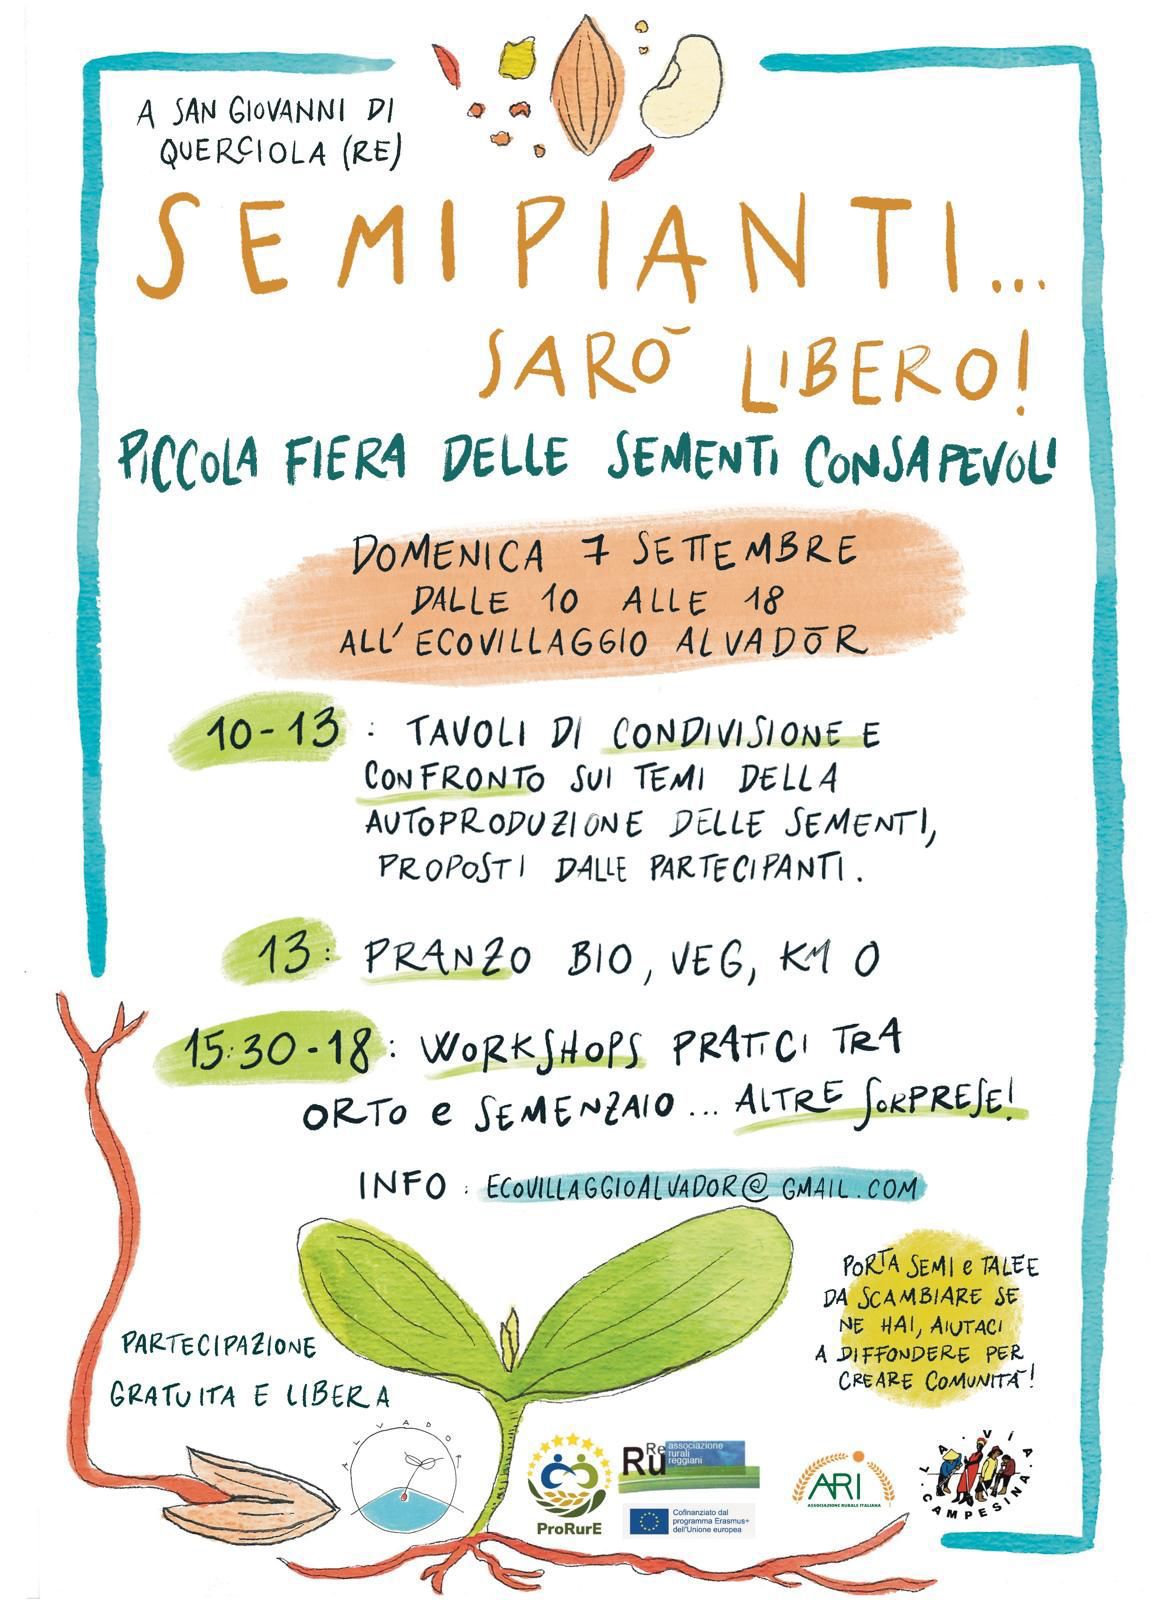 A SAN GIOVANNI DI
QUERCIOLA (RE)
SEMIPIANTI...
SARÒ LIBERO!
PICCOLA FIERA DELLE SEMENTI CONSAPEVOLI
DOMENICA 7 SETTEMBRE
DALLE 10 ALLE 18
ALL'ECOVILLAGGIO ALVADŌR
10-13 : TAVOLI DI CONDIVISIONE E
CONFRONTO SUI TEMI DELLA
AUTOPRODUZIONE DELLE SEMENTI,
PROPOSTI DALLE PARTECIPANTI.
13: PRANZO BIO, VEG, KM 0
15:30-18: WORKSHOPS PRATICI TRA
ORTO e SEMENZAIO... ALTRE SORPRESE!
INFO: ECOVILLAGGIOALVADOR@GMAIL.COM
PORTA SEMI e TALEE
DA SCAMBIARE SE
NE HAI, AIUTACI
A DIFFONDERE PER
CREARE COMUNITÀ!
PARTECIPAZIONE
GRATUITA E LIBERA
ALVADOR
ProRurE
Re
Ru
associazione
rurali
reggiani
Cofinanziato dal
programma Erasmus+
dell'Unione europea
ARI
ASSOCIAZIONE RURALE ITALIANA
LA VIA
CAMPESINA